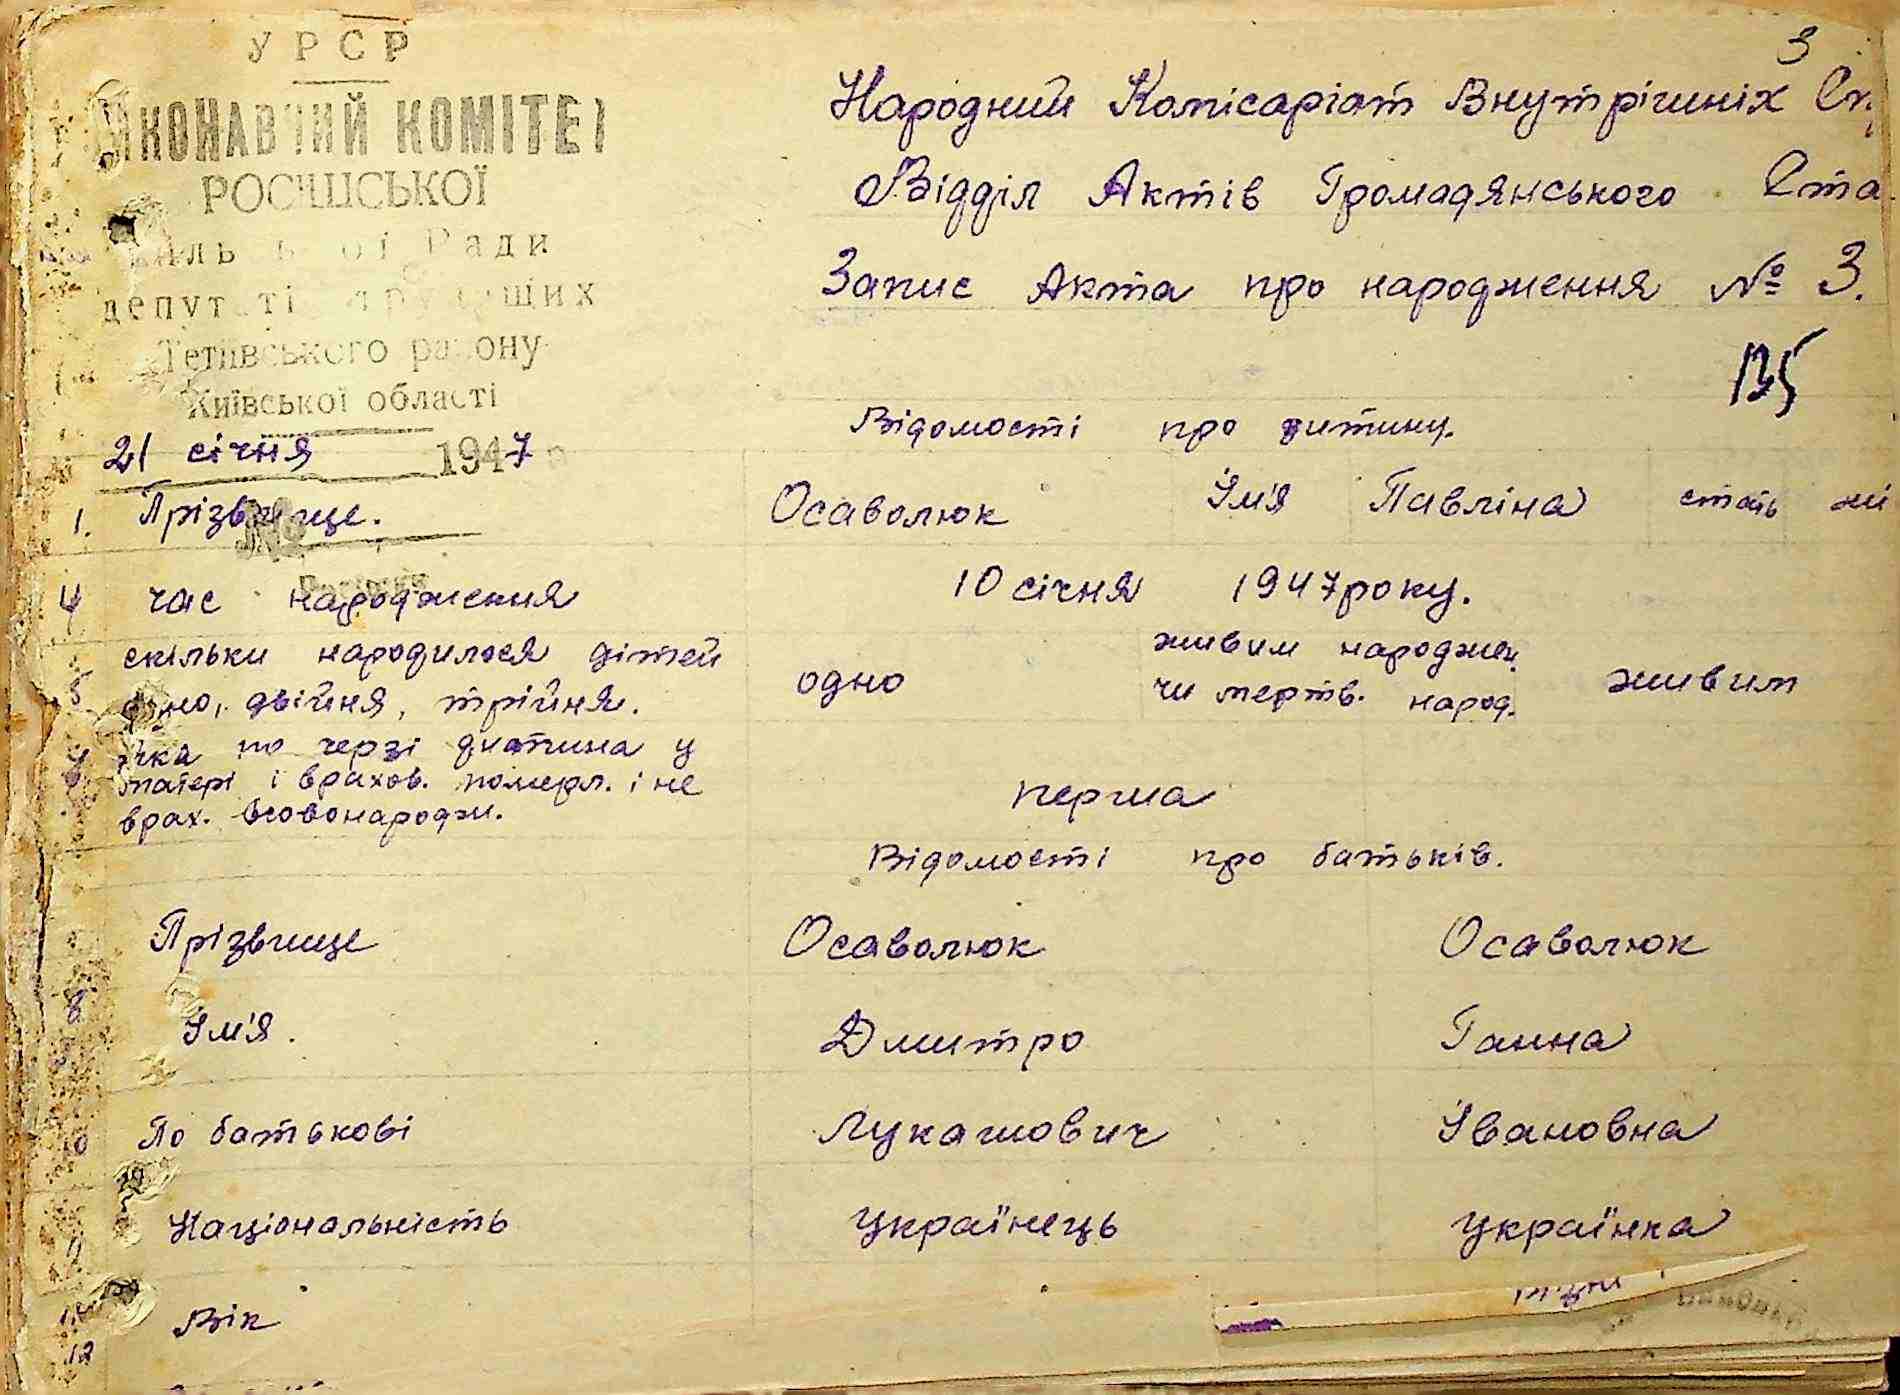 3
УРСР
КОНАВЧИЙ КОМІТЕТ
РОСІШСЬКОЇ
Ради
Тетіївського району
Київської області
21 січня 1947
№
Народний Комісаріат Внутрішніх
Відділ Актів Громадянського Ста
Запис Акта про народження № 3.
Відомості про дитину.
1. Прізвище. Осаволюк Ім'я Павліна стать жі
4 час народження 10 січня 1947 року.
скільки народилося дітей одно живим народжен.
5 одно, двійня, трійня. чи мертв. народ. живим
яка по черзі дитина у
матері і врахов. померл. і не перша
врах.
Відомості про батьків.
Прізвище Осаволюк Осаволюк
8 Ім'я. Дмитро Ганна
По батькові Лукашович Івановна
Національність Українець Українка
Вік
12